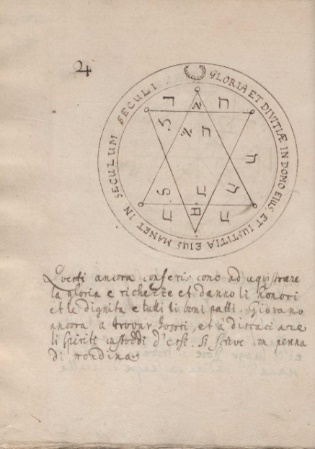 ♃
GLORIA ET DIVITIÆ IN DOMO EIUS ET IUSTITIA EIUS MANET IN SECULUM SECULI
Questi ancora conferiscono ad aquistare
la gloria e richezze et danno li honori
et le dignita e tutti li beni Giovano
ancora a trovar tesori, et a discacciare
li spiriti custodi d'essi. si scrive con penna
di rondina